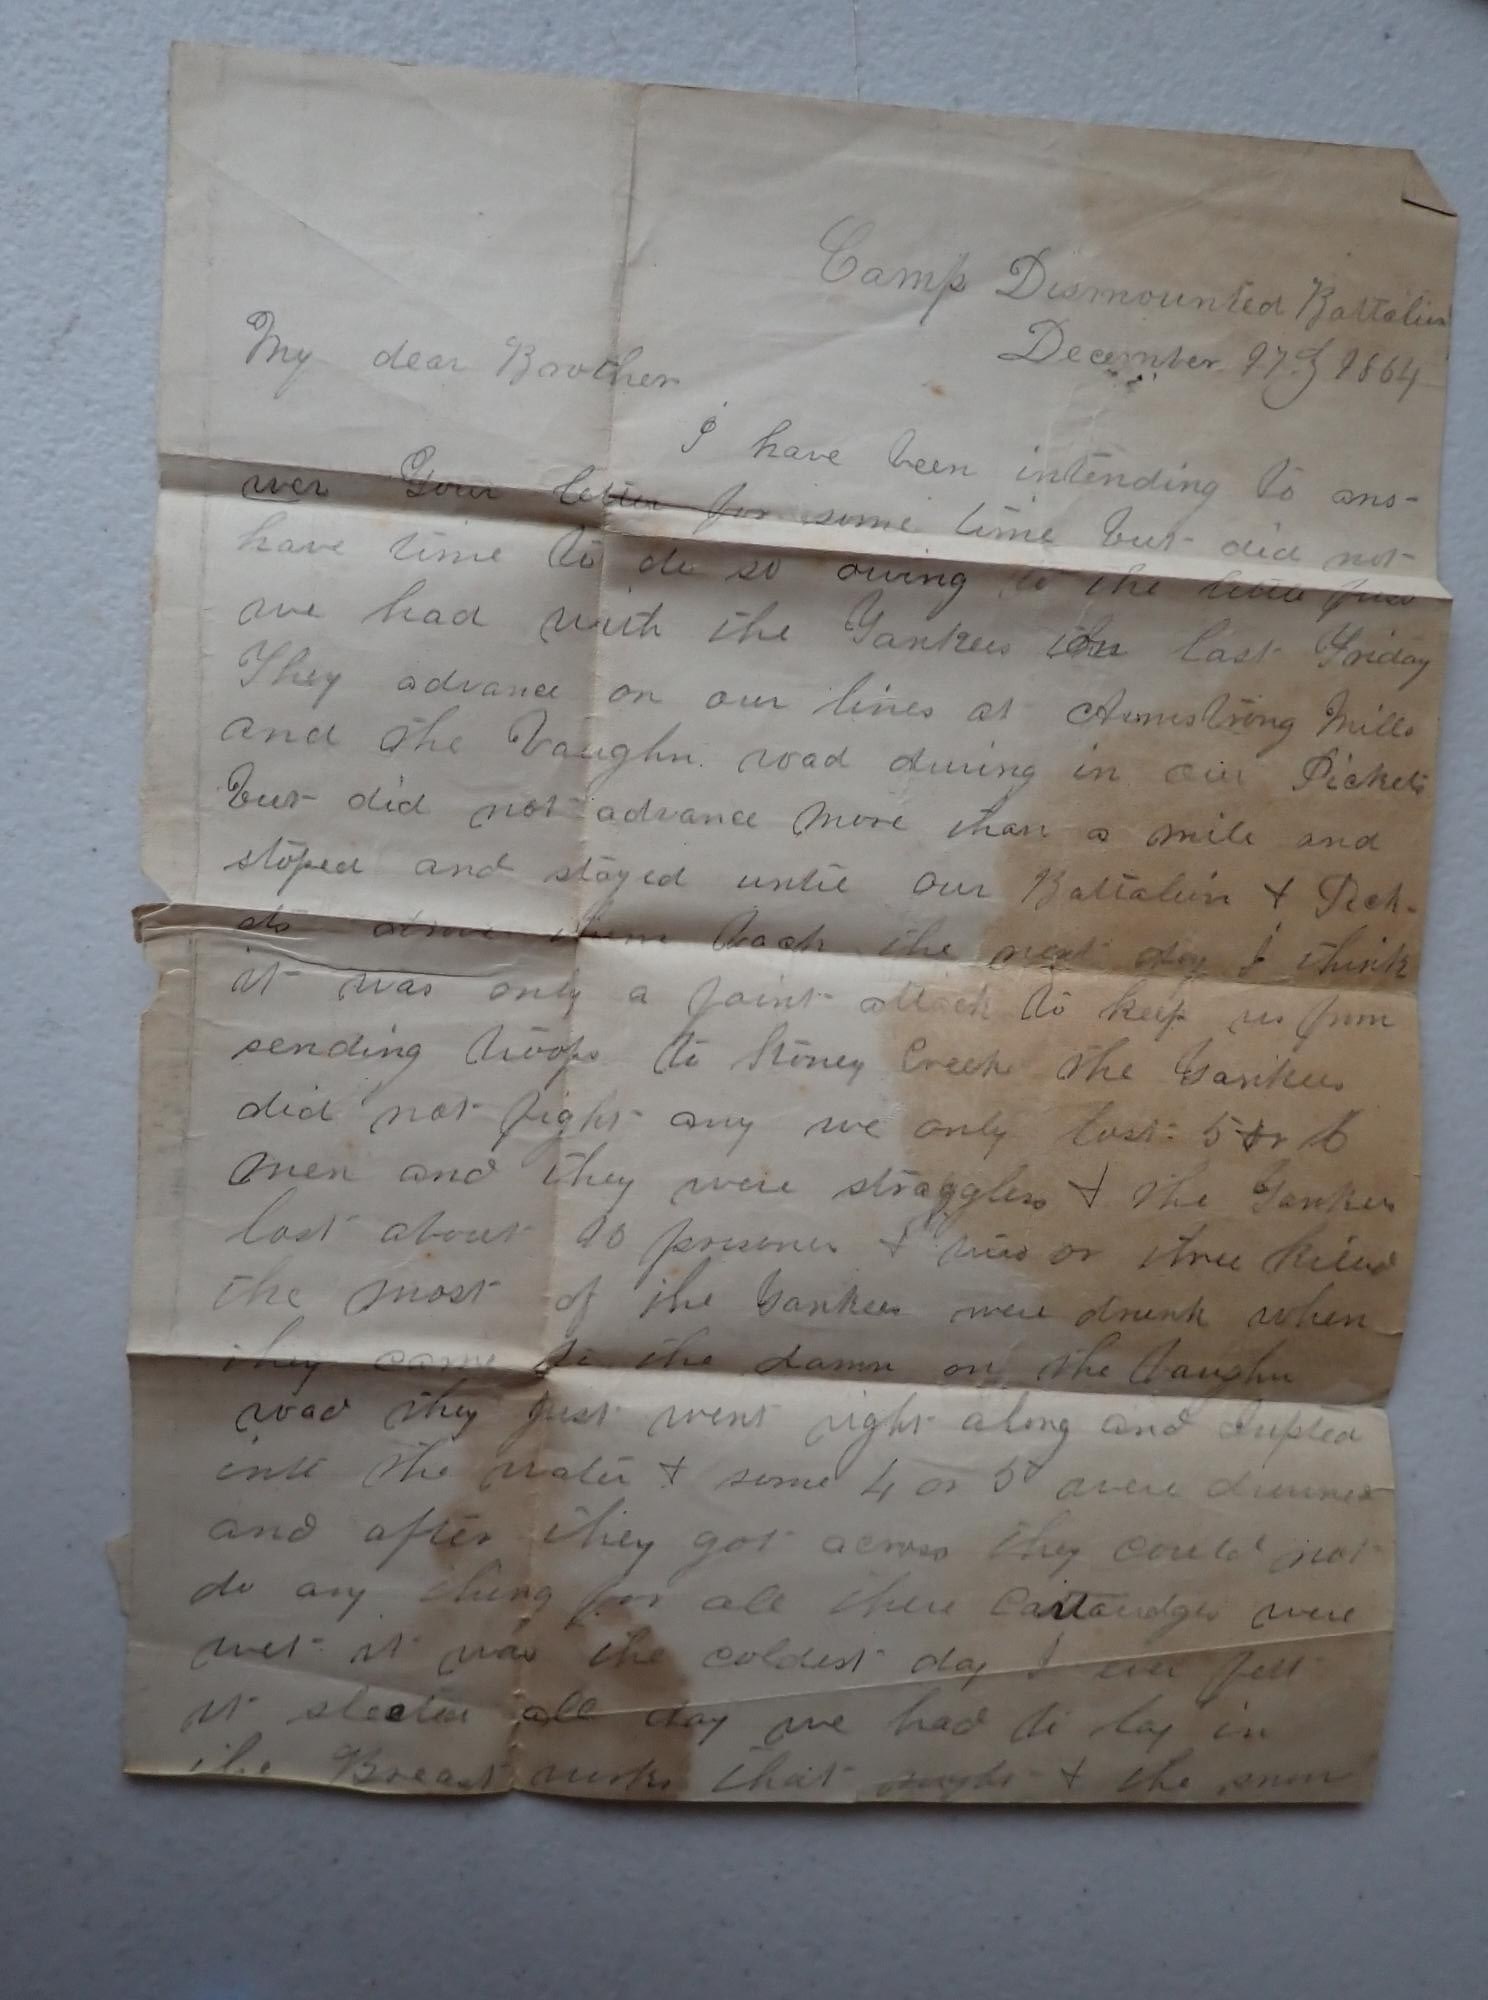 Camp Dismounted Battalion
December 17th 1864
My dear Brother
I have been intending to ans-
wer Your letter for some time but did not
have time to do so owing to the little fuss
we had with the Yankees on last Friday
They advance on our lines at Armstrong Mills
and the Vaughn road driving in our Pickets
but did not advance more than a mile and
stoped and stayed until our Battalion & Pick-
ets drove them back the next day I think
it was only a faint attack to keep us from
sending troops to Stoney Creek the Yankees
did not fight any we only lost 5 or 6
men and they were stragglers & the Yankees
lost about 40 prisoners & two or three killed
the most of the Yankees were drunk when
they came to the damn on the Vaughn
road they just went right along and
into the water & some 4 or 5 were drowned
and after they got across they could not
do any thing for all there Cartaridges were
wet it was the coldest day I ever felt
it sleeted all day we had to lay in
the Breast works that night & the snow